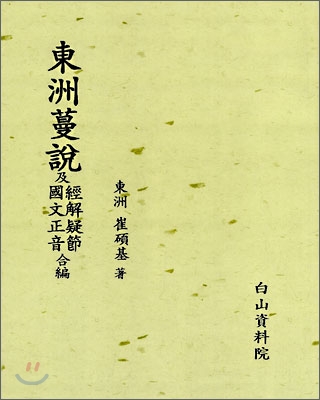 東洲蔓說
及 經解疑節
國文正音 合編
東洲 崔碩基 著
白山資料院